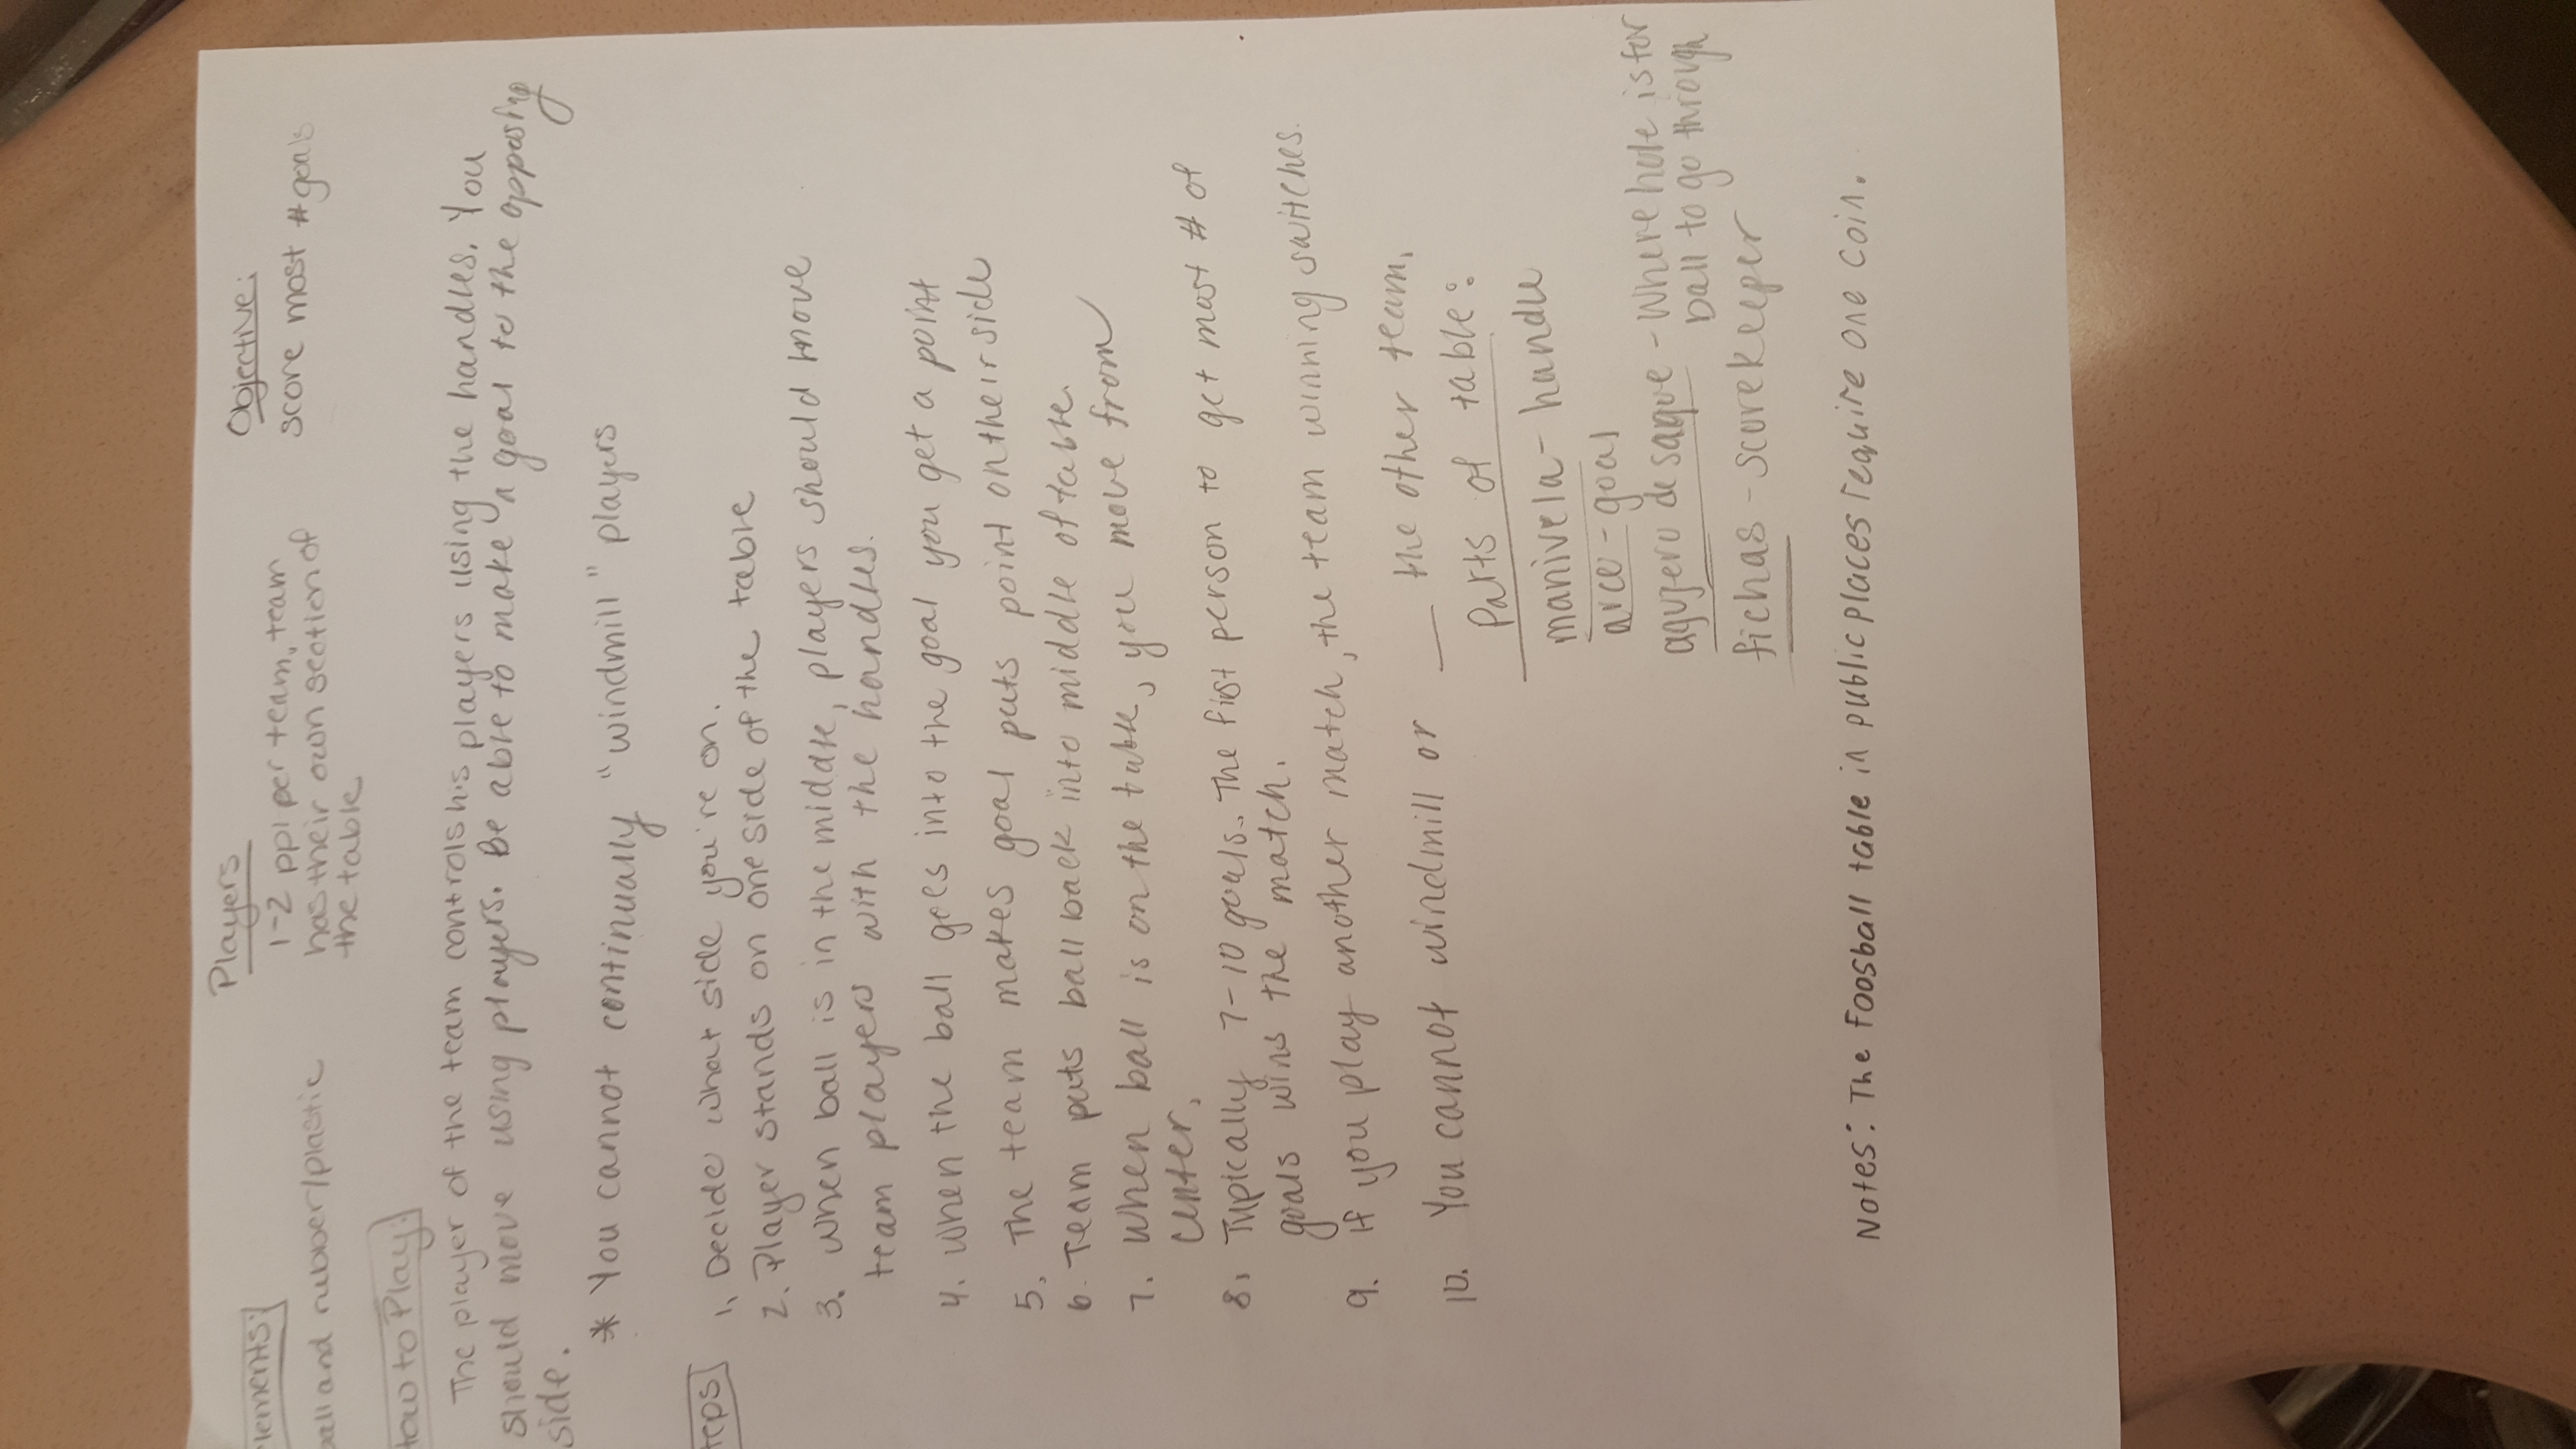 Players
Objective:
lements:
1-2 ppl per team, team
score most # goals
ball and rubber/plastic
has their own section of
the table
How to Play:
The player of the team controls his players using the handles. You
should move using players. Be able to make a goal to the opposing
side.
* You cannot continually "windmill" players
teps
1. Decide what side you're on.
2. Player stands on one side of the table
3. When ball is in the middle, players should move
team players with the handles.
4. When the ball goes into the goal you get a point
5. The team makes goal puts point on their side
6. Team puts ball back into middle of table.
7. When ball is on the table, you move from
center.
8. Typically 7-10 goals. The first person to get most # of
goals wins the match.
9. If you play another match, the team winning switches.
10. You cannot windmill or — the other team.
Parts of table:
manivela - handle
arce - goal
agujero de saque - Where hole is for
ball to go through
fichas - scorekeeper
Notes: The Foosball table in public places require one coin.